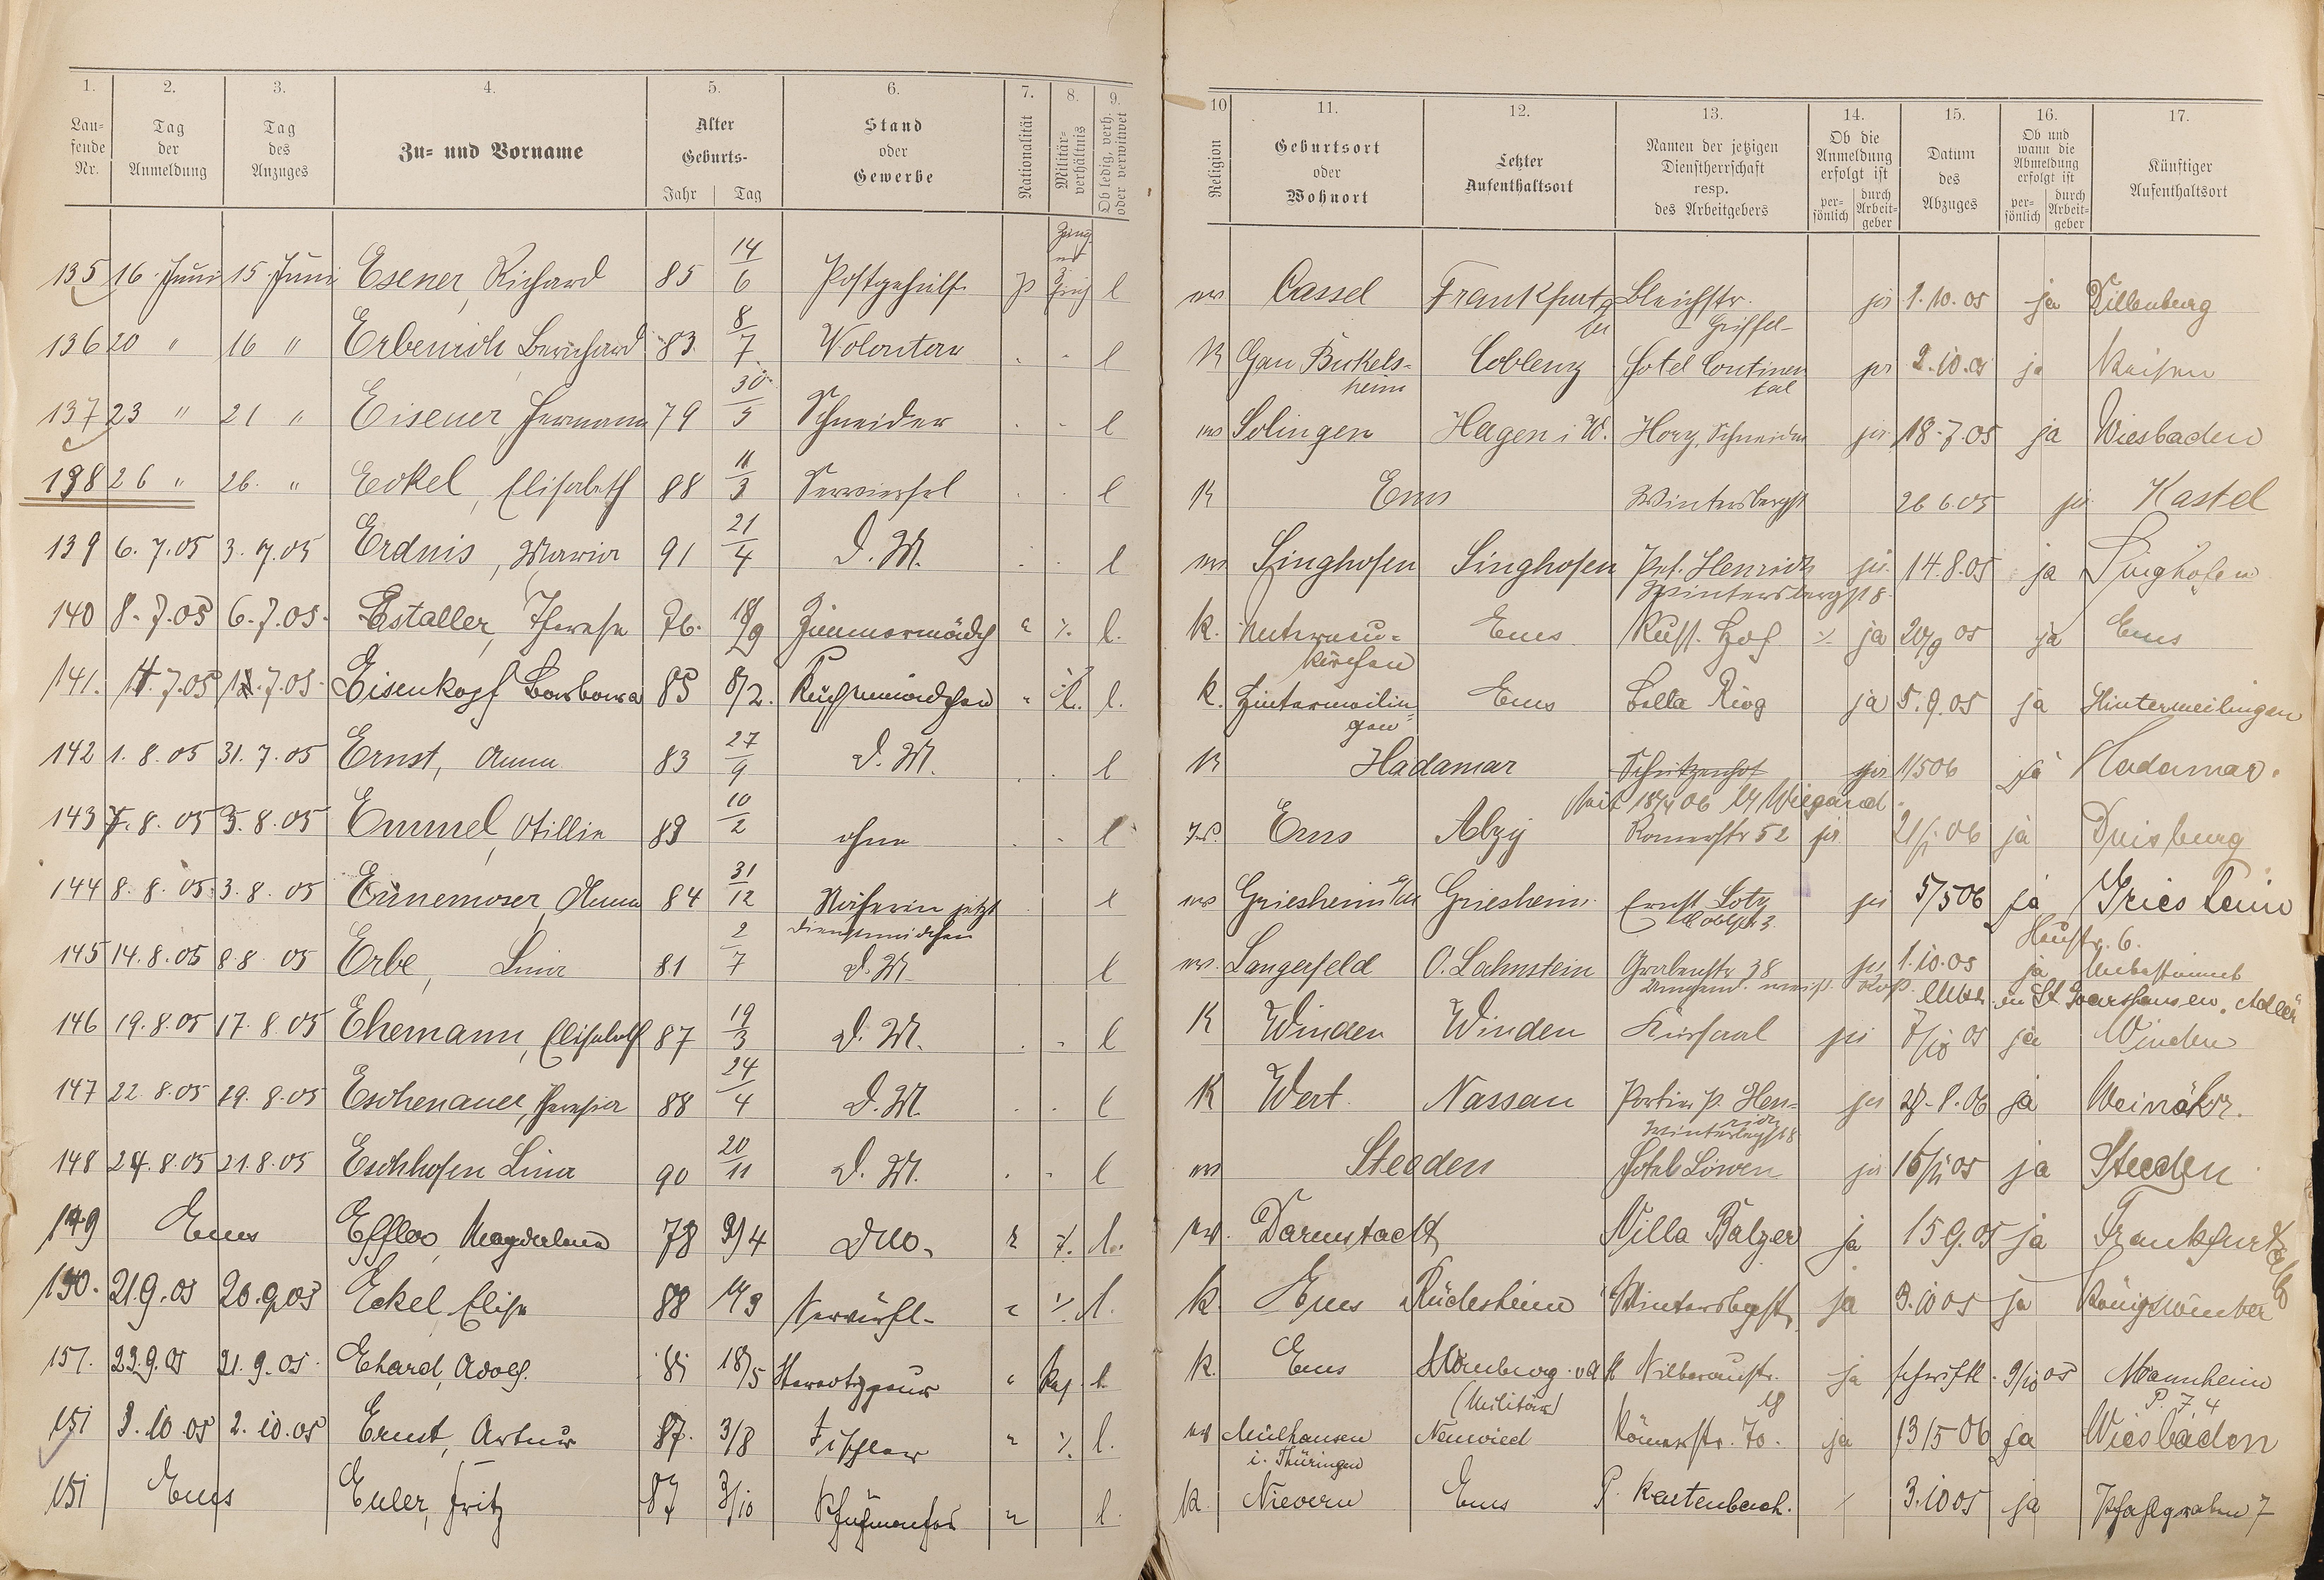 1. 2. 3. 4. 5. 6. 7. 8. 9. 10 11. 12. 13. 14. 15. 16. 17.
Lau-fende Nr. Tag der Anmeldung Tag des Anzuges Zu- und Vorname Alter Geburts- Jahr Tag Stand oder Gewerbe Nationalität Militär-verhältnis Ob ledig, verh. oder verwitwet Religion Geburtsort oder Wohnort Letzter Aufenthaltsort Namen der jetzigen Dienstherrschaft resp. des Arbeitgebers Ob die Anmeldung erfolgt ist per-sönlich durch Arbeit-geber Datum des Abzuges Ob und wann die Abmeldung erfolgt ist per-sönlich durch Arbeit-geber Künftiger Aufenthaltsort
135 16. Juni 15. Juni Esener, Richard 85 14/6 Postgehülfe p l ev Cassel Frankfurt Bleichstr. ja 1.10.05 ja Dillenburg
bei Griffel-
136 20 " 16 " Erbenich, Bernhard 83. 8/7. Volontär l K Gau Bickels- Coblenz Hotel Continen ja 2.10.05 ja
heim tal
137 23 " 21 " Eisener, Hermann 79 30/5 Schneider l ev Solingen Hagen i. W. Hory, Schneider ja 18.7.05 ja Wiesbaden
138 26 " 26. " Eckel, Elisabeth 88 11/3 l K Ems Wintersbergst 26 6.05 ja Kastel
139 6.7.05 3.7.05 Erdnis, Maria 91 21/4 D.M. l ev Singhofen Singhofen Prf. Henrich ja 14.8.05 ja Singhofen
Wintersbergst 8
140 8.7.05 6.7.05. Estaller, Therese 76. 18/9 Zimmermädch " %. l. k. Unterneu- Ems Russ. Hof % ja 20/9 05 ja Ems
kirchen
141. 11.7.05 12.7.05 Eisenkopf Barbara 85 8/2. Küchenmädchen " l. k. Hintermeilin Ems Bella Riva ja 5.9.05 ja Hintermeilingen
gen
142 1.8.05 31.7.05 Ernst, Anna 83 27/9 D.M. l K Hadamar Schützenhof ja 1/506 ja Hadamar.
seit 18/4 06 Wiegand
143 7.8.05 3.8.05 Emmel, Otillie 89 10/2 ohne l ev. Ems Alzy Romerstr 52 ja 21/1 06 ja Duisburg
144 8.8.05 3.8.05 Ennemoser, Anna 84 31/12 Näherin jetzt l ev Griesheim a/M Griesheim Ernst Lotz ja 5/506 ja Griesheim
Dienstmädchen Adolph 3. Heustr. 6.
145 14.8.05 8.8.05 Erbe, Lina 81 2/7 D.M. l ev. Langerfeld O. Lahnstein Grabenstr 38 ja 1.10.05 ja Unbestimmt
in St Goarshausen, Adler
146 19.8.05 17.8.05 Ehemann, Elisabeth 87 19/3 D.M. l K Winden Winden Kursaal ja 7/10 05 ja Winden
147 22.8.05 19.8.05 Eschenauer, Theresia 88 24/4 D.M. l K Wert Nassau Portier p. Hen- ja 28.8.06 ja Weinähr.
rich Wintersbergst 8
148 24.8.05 21.8.05 Eschhofen Lina 90 20/11 D.M. l ev Steeden Hotel Löwen ja 16/11 05 ja Steeden
149 Ems Effler, Magdalena 78 9/4 DM. " %. l. ev. Darmstadt Villa Balzer ja 15 9.05 ja Frankfurt
150. 21.9.05 20.9.05 Eckel Elise 88 11/3 " % l. k. Ems Rüdesheim Wintersbergst. ja 3.10 05 ja
151. 22.9.05 21.9.05. Ehard, Adolf. 81 18/5 Stereotypeur " l. k. Ems Homburg v d H ja schriftl. 9/10 05 Mannheim
(Militär) 18 P. 7. 4
151 3.10.05 2.10.05 Ernst, Artur 87. 3/8 Tischler " % l. ev Mülhausen Neuwied Römerstr. 70. ja 13/5 06 ja Wiesbaden
i. Thüringen
151 Ems Euler, Fritz 87 3/10 Schuhmacher " l. k. Nievern Ems P. Kartenbach. 3.10 05 ja Pfahlgraben 7